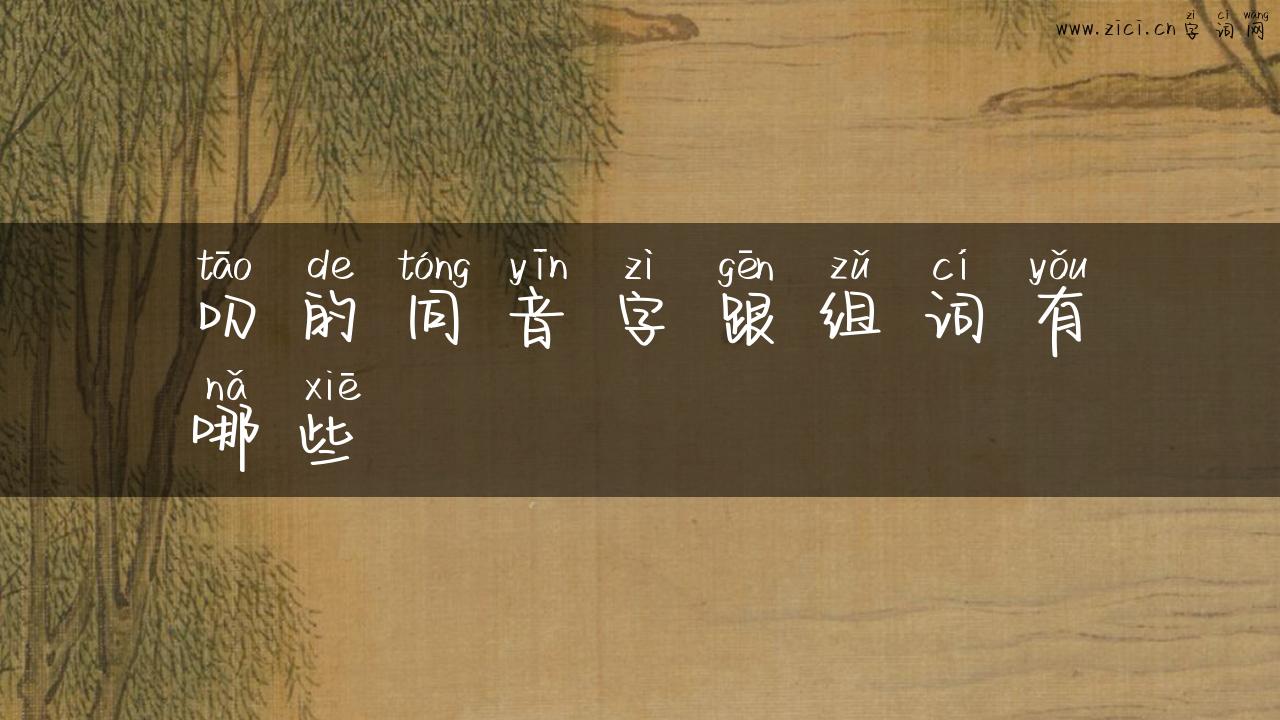 zì cí wǎng
www.zici.cn字词网
tāo de tóng yīn zì gēn zǔ cí yǒu
叨的同音字跟组词有
nǎ xiē
哪些